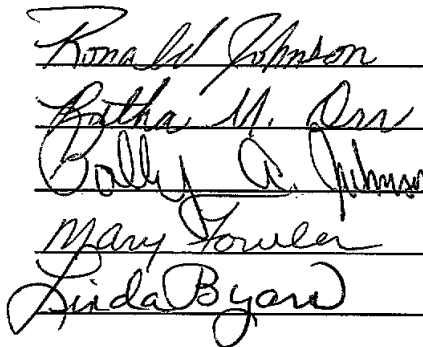 Ronald Johnson
M. Orr
A. Johnson
Mary Fowler
Linda Byars